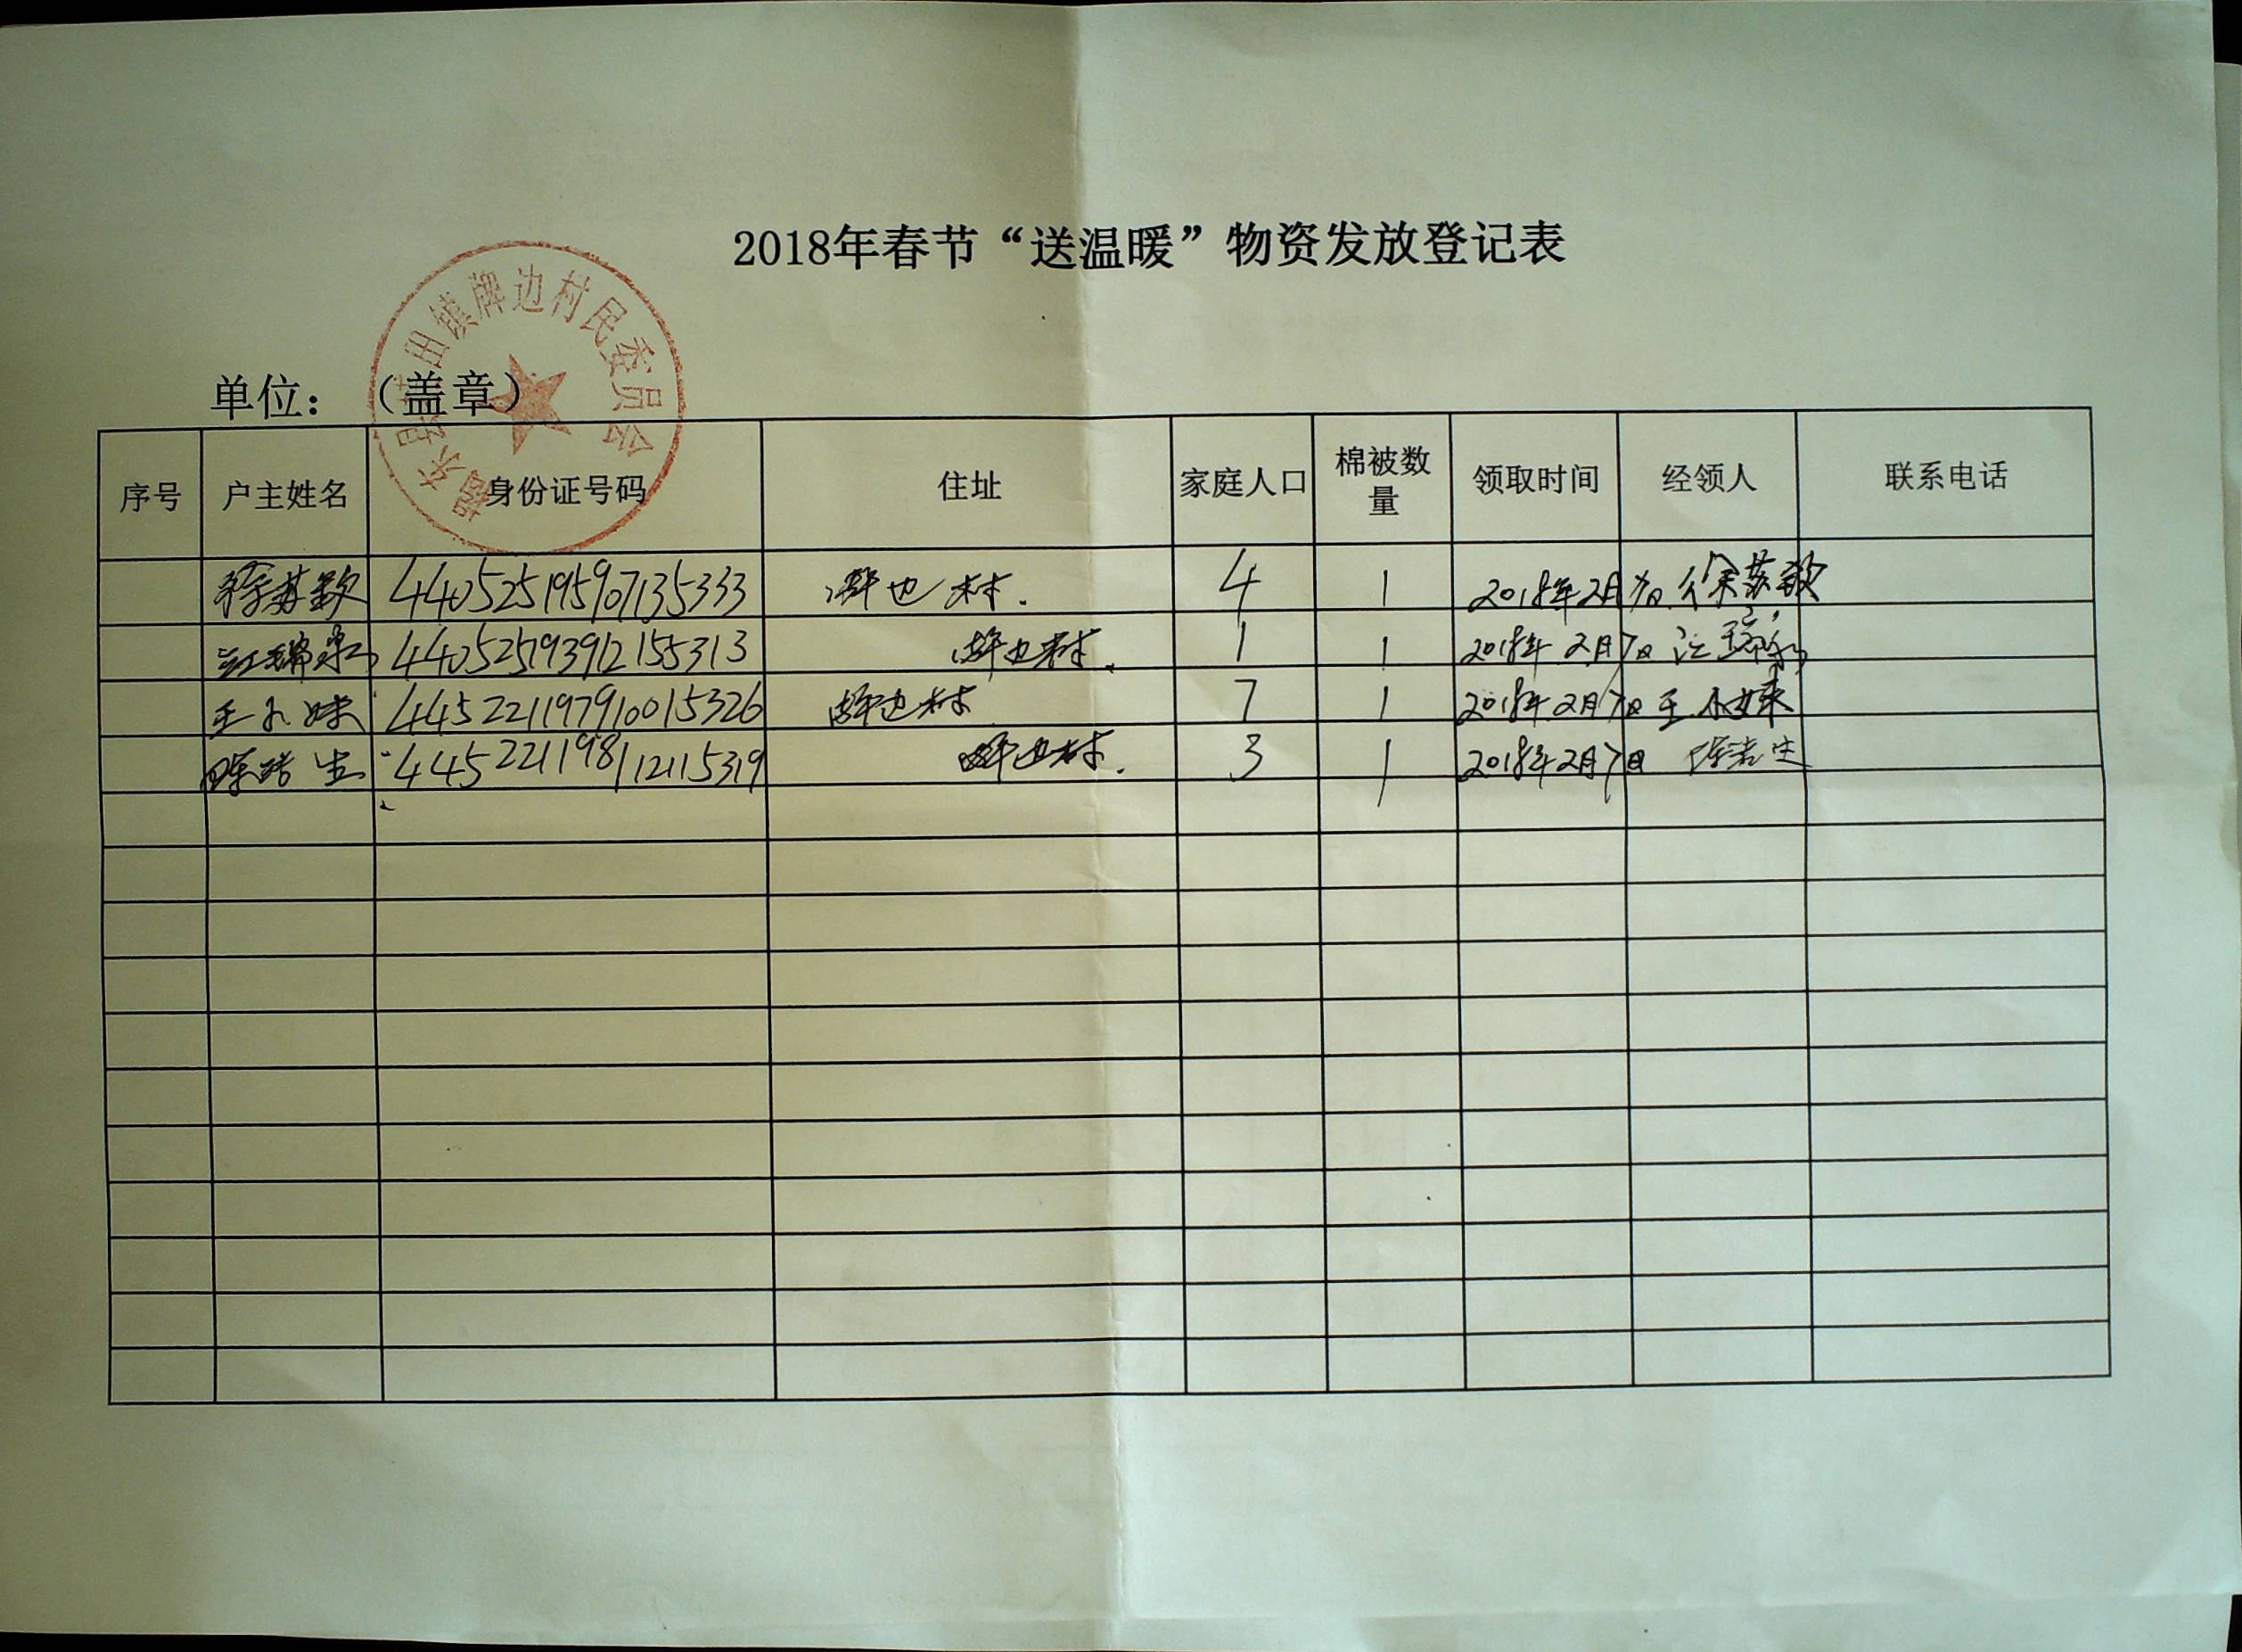 2018年春节“送温暖”物资发放登记表
田镇牌边村民委员会
单位：（盖章）
序号 户主姓名 身份证号码 住址 家庭人口 棉被数量 领取时间 经领人 联系电话
徐苏敏 440525195907135333 牌边村. 4 1 2018年2月7日 徐苏敏
440525193912155313 牌边村. 1 1 2018年2月7日
王小妹 445221197910015326 牌边村 7 1 2018年2月7日 王小妹
陈浩生 445221198112115319 牌边村. 3 1 2018年2月7日 陈浩生